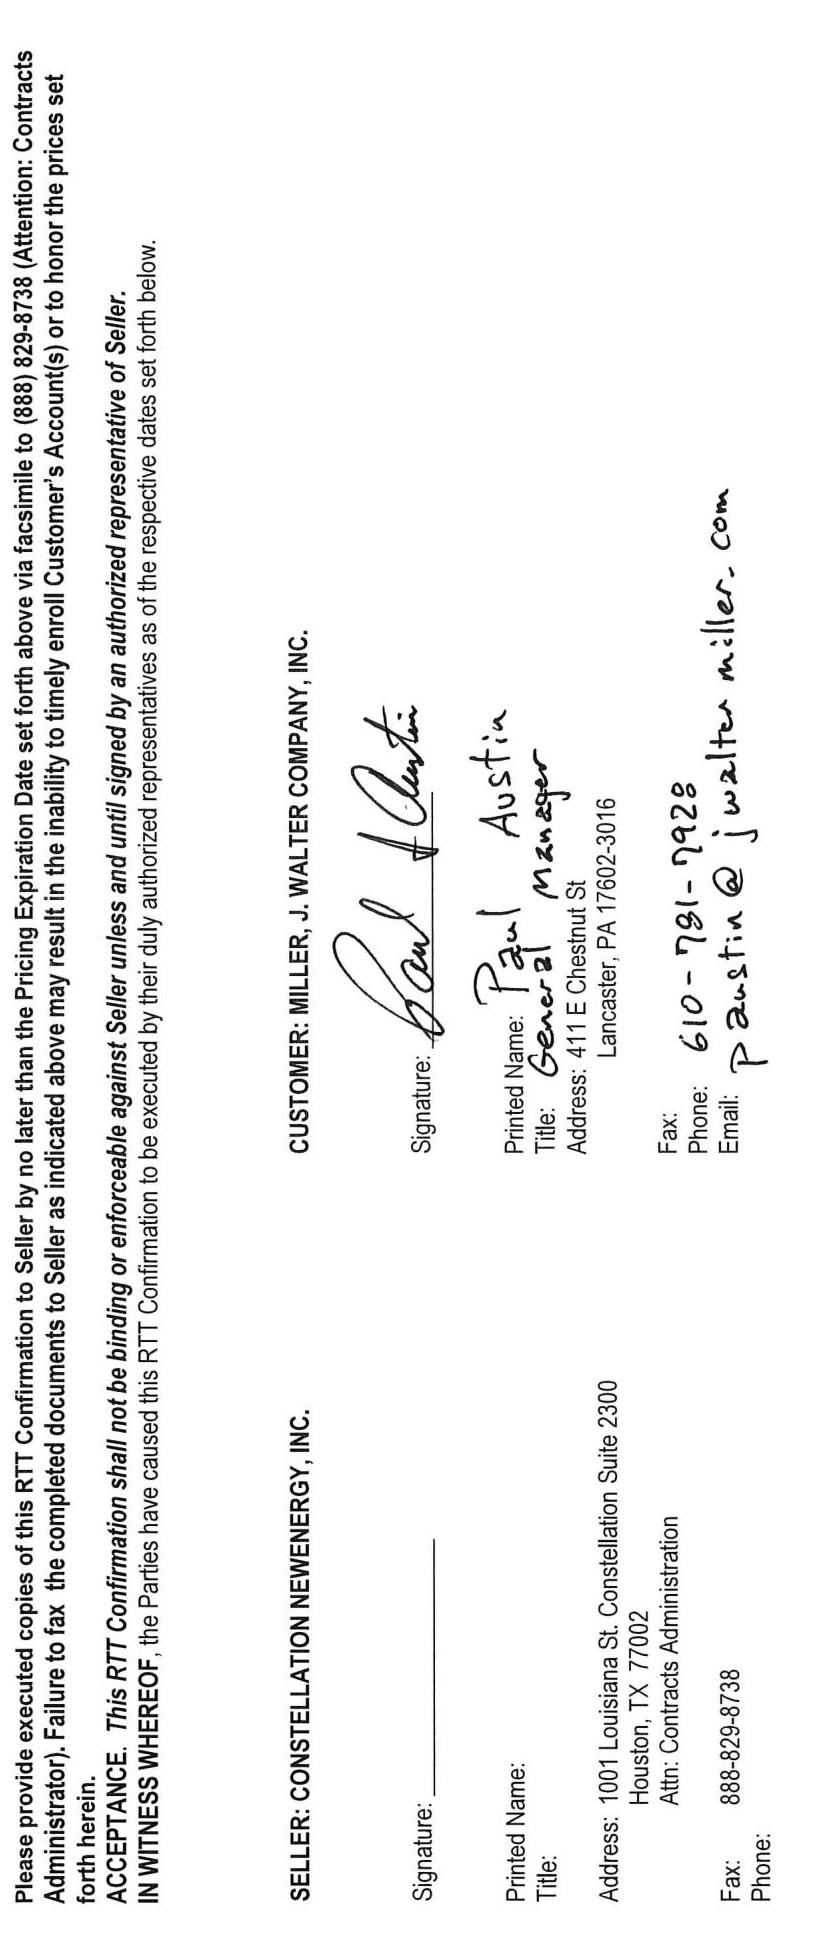 Please provide executed copies of this RTT Confirmation to Seller by no later than the Pricing Expiration Date set forth above via facsimile to (888) 829-8738 (Attention: Contracts
Administrator). Failure to fax the completed documents to Seller as indicated above may result in the inability to timely enroll Customer's Account(s) or to honor the prices set
forth herein.
ACCEPTANCE. This RTT Confirmation shall not be binding or enforceable against Seller unless and until signed by an authorized representative of Seller.
IN WITNESS WHEREOF, the Parties have caused this RTT Confirmation to be executed by their duly authorized representatives as of the respective dates set forth below.
SELLER: CONSTELLATION NEWENERGY, INC.
Signature:
Printed Name:
Title:
Address: 1001 Louisiana St. Constellation Suite 2300
Houston, TX 77002
Attn: Contracts Administration
Fax: 888-829-8738
Phone:
CUSTOMER: MILLER, J. WALTER COMPANY, INC.
Signature: Paul H Austin
Printed Name: Paul Austin
Title: General Manager
Address: 411 E Chestnut St
Lancaster, PA 17602-3016
Fax:
Phone: 610-781-7928
Email: paustin@jwaltermiller.com